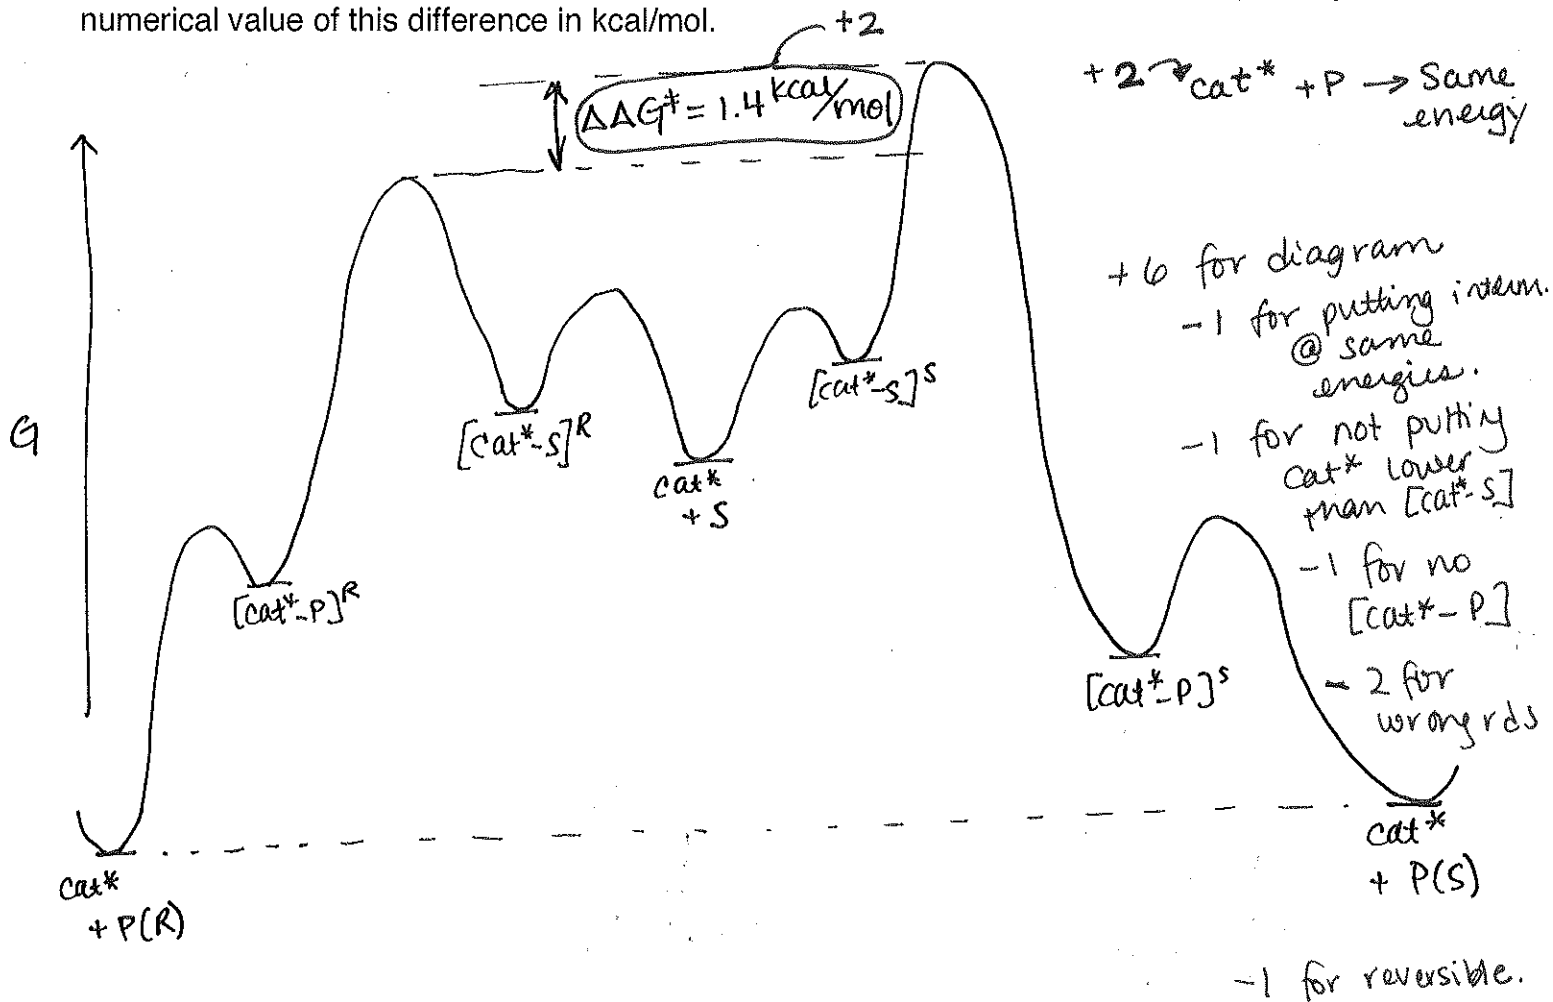 numerical value of this difference in kcal/mol.
+2
ΔΔG‡ = 1.4 kcal/mol
+2 cat* + P → Same
energy
+6 for diagram
-1 for putting interm.
@ same
energies.
-1 for not putting
cat* lower
than [cat*-S]
-1 for no
[cat*-P]
- 2 for
wrong rds
G
[cat*-P]ᴿ
[cat*-S]ᴿ
cat*
+ S
[cat*-S]ˢ
[cat*-P]ˢ
cat*
+ P(R)
cat*
+ P(S)
-1 for reversible.